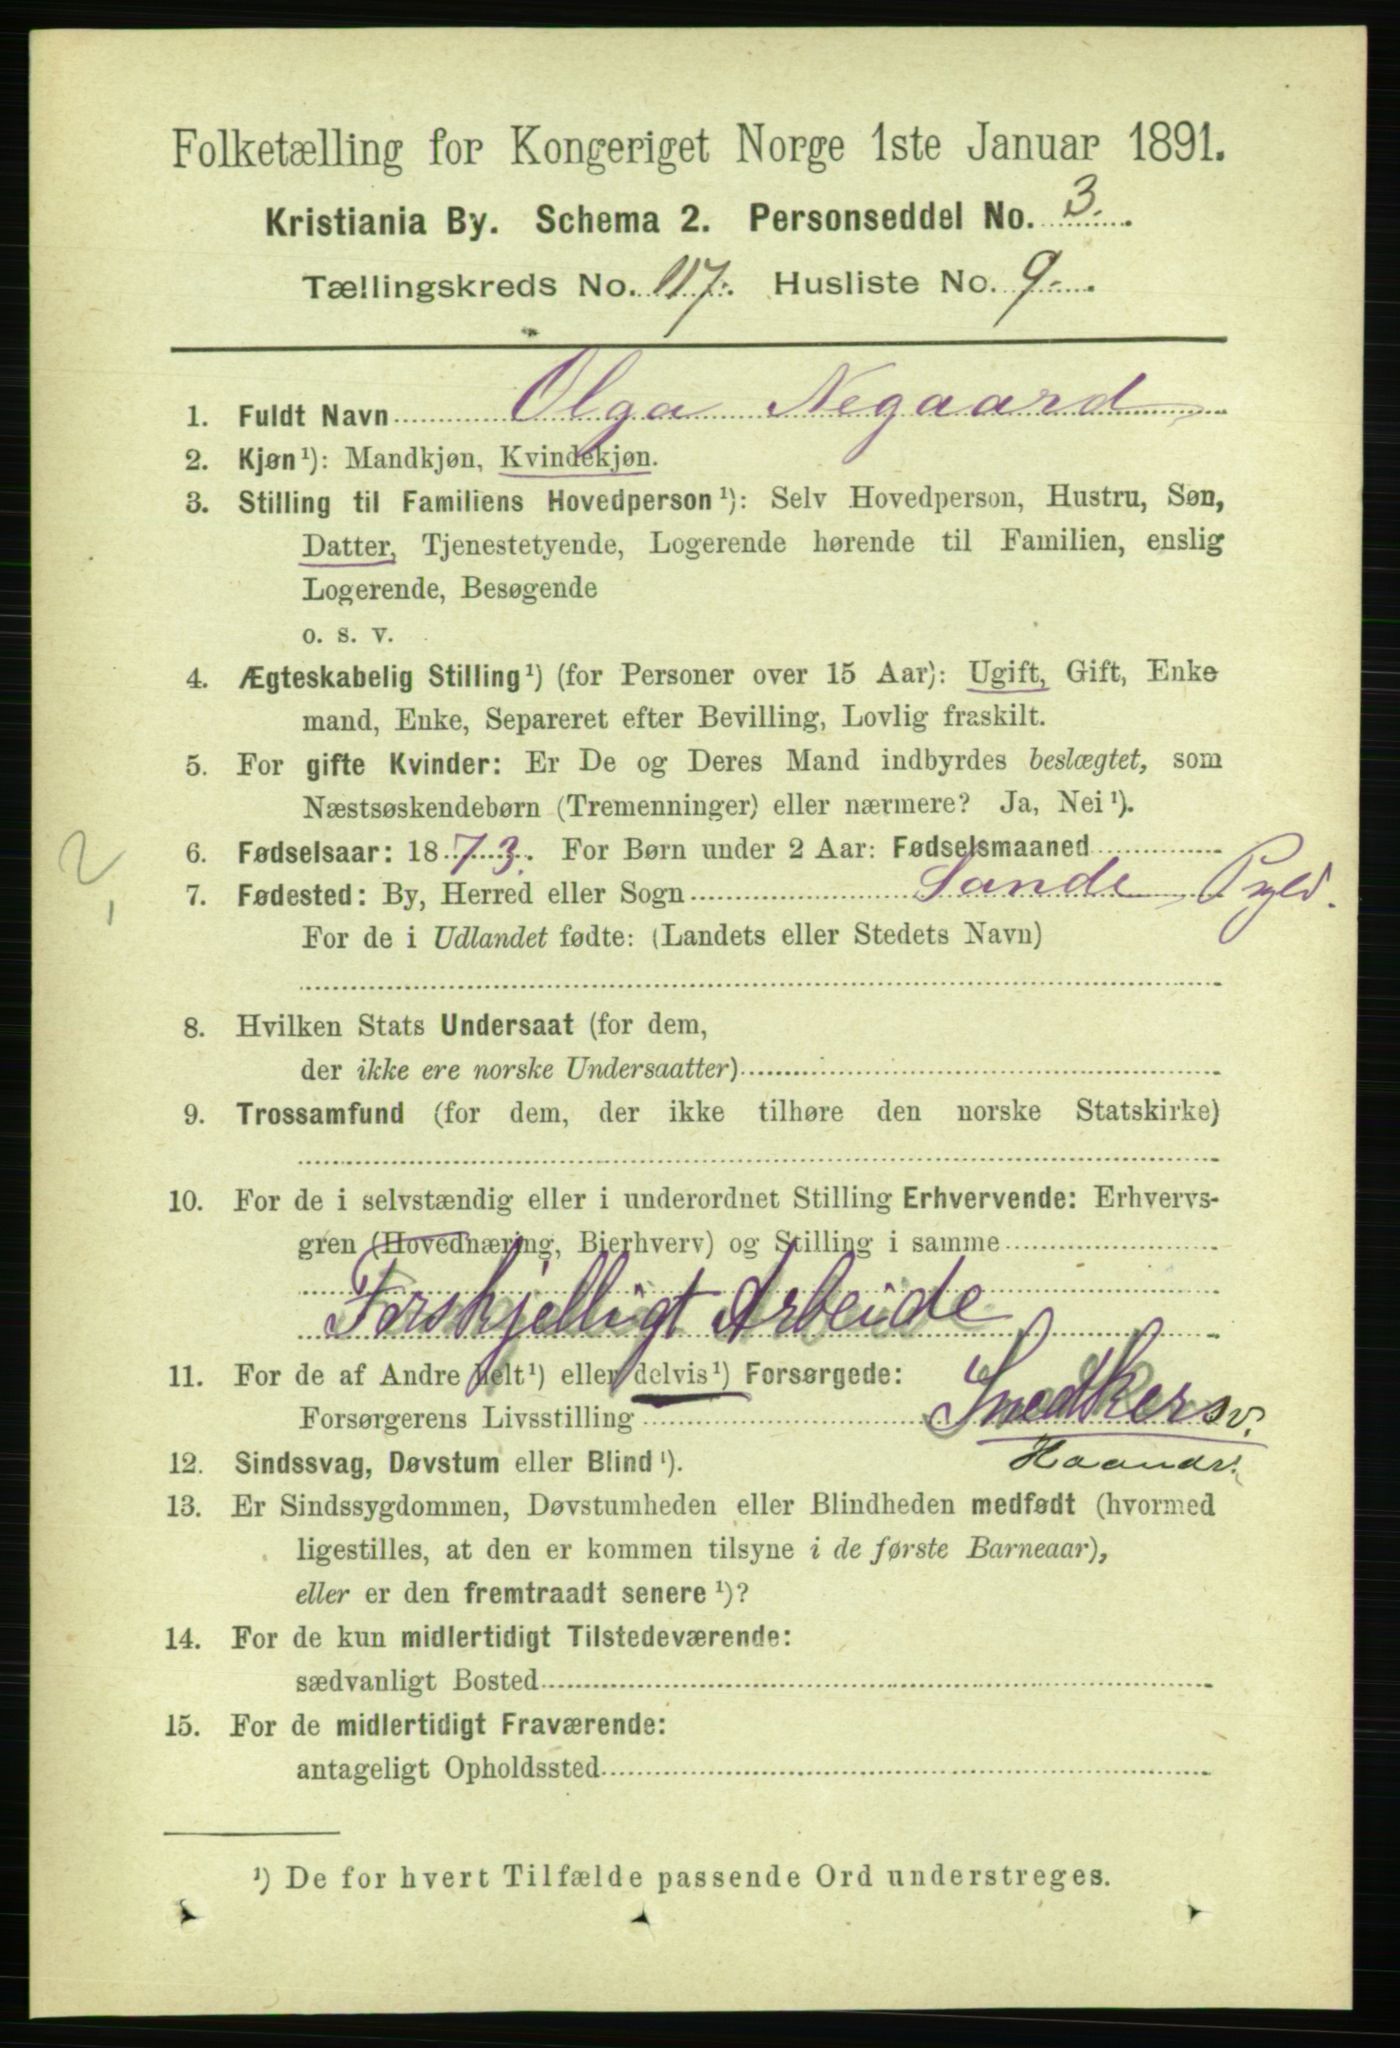 Folketælling for Kongeriget Norge 1ste Januar 1891.
Kristiania By. Schema 2. Personseddel No. 3.
Tællingskreds No. 117. Husliste No. 9.
1. Fuldt Navn Olga Negaard
2. Kjøn¹): Mandkjøn, Kvindekjøn.
3. Stilling til Familiens Hovedperson¹): Selv Hovedperson, Hustru, Søn,
Datter, Tjenestetyende, Logerende hørende til Familien, enslig
Logerende, Besøgende
o. s. v.
4. Ægteskabelig Stilling¹) (for Personer over 15 Aar): Ugift, Gift, Enke
mand, Enke, Separeret efter Bevilling, Lovlig fraskilt.
5. For gifte Kvinder: Er De og Deres Mand indbyrdes beslægtet, som
Næstsøskendebørn (Tremenninger) eller nærmere? Ja, Nei¹).
2
6. Fødselsaar: 1873. For Børn under 2 Aar: Fødselsmaaned
7. Fødested: By, Herred eller Sogn Sande
For de i Udlandet fødte: (Landets eller Stedets Navn)
8. Hvilken Stats Undersaat (for dem,
der ikke ere norske Undersaatter)
9. Trossamfund (for dem, der ikke tilhøre den norske Statskirke)
10. For de i selvstændig eller i underordnet Stilling Erhvervende: Erhvervs-
gren (Hovednæring, Bierhverv) og Stilling i samme
Forskjelligt Arbeide
11. For de af Andre helt¹) eller delvis¹) Forsørgede:
Forsørgerens Livsstilling Snedkersv.
Haandv.
12. Sindssvag, Døvstum eller Blind¹).
13. Er Sindssygdommen, Døvstumheden eller Blindheden medfødt (hvormed
ligestilles, at den er kommen tilsyne i de første Barneaar),
eller er den fremtraadt senere¹)?
14. For de kun midlertidigt Tilstedeværende:
sædvanligt Bosted
15. For de midlertidigt Fraværende:
antageligt Opholdssted
¹) De for hvert Tilfælde passende Ord understreges.